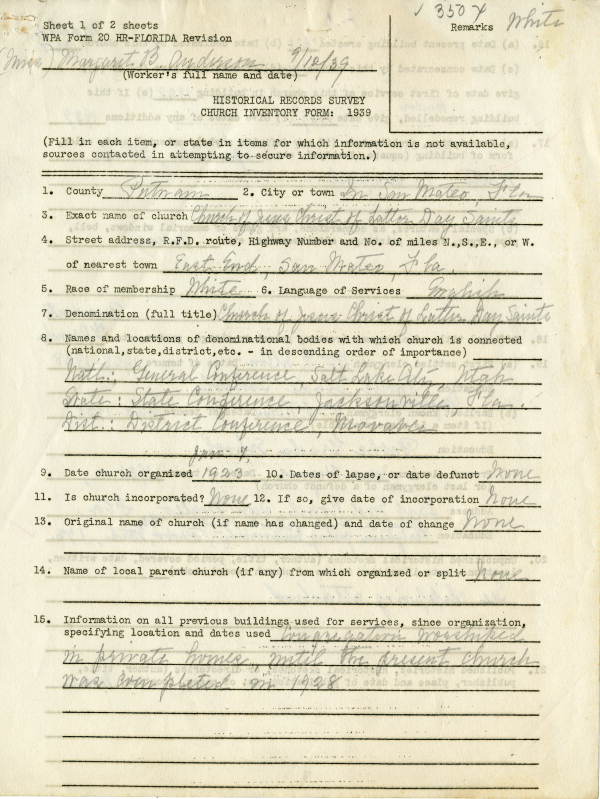 1 350 X
Sheet 1 of 2 sheets
Remarks White
WPA Form 20 HR-FLORIDA Revision
(Miss) Margaret B. Anderson 9/12/39
(Worker's full name and date)
HISTORICAL RECORDS SURVEY
CHURCH INVENTORY FORM: 1939
(Fill in each item, or state in items for which information is not available,
sources contacted in attempting to secure information.)
1. County Putnam 2. City or town In San Mateo, Fla
3. Exact name of church Church of Jesus Christ of Latter Day Saints
4. Street address, R.F.D. route, Highway Number and No. of miles N.,S.,E., or W.
of nearest town East End, San Mateo, Fla.
5. Race of membership White 6. Language of Services English
7. Denomination (full title) Church of Jesus Christ of Latter Day Saints
8. Names and locations of denominational bodies with which church is connected
(national,state,district,etc. - in descending order of importance)
Natl.: General Conference, Salt Lake City, Utah
State: State Conference, Jacksonville, Fla.
Dist.: District Conference,
7,
9. Date church organized 1923 10. Dates of lapse, or date defunct None
11. Is church incorporated? None 12. If so, give date of incorporation None
13. Original name of church (if name has changed) and date of change None
14. Name of local parent church (if any) from which organized or split None
15. Information on all previous buildings used for services, since organization,
specifying location and dates used Congregation worshiped
in private homes, until the present church
was completed in 1928